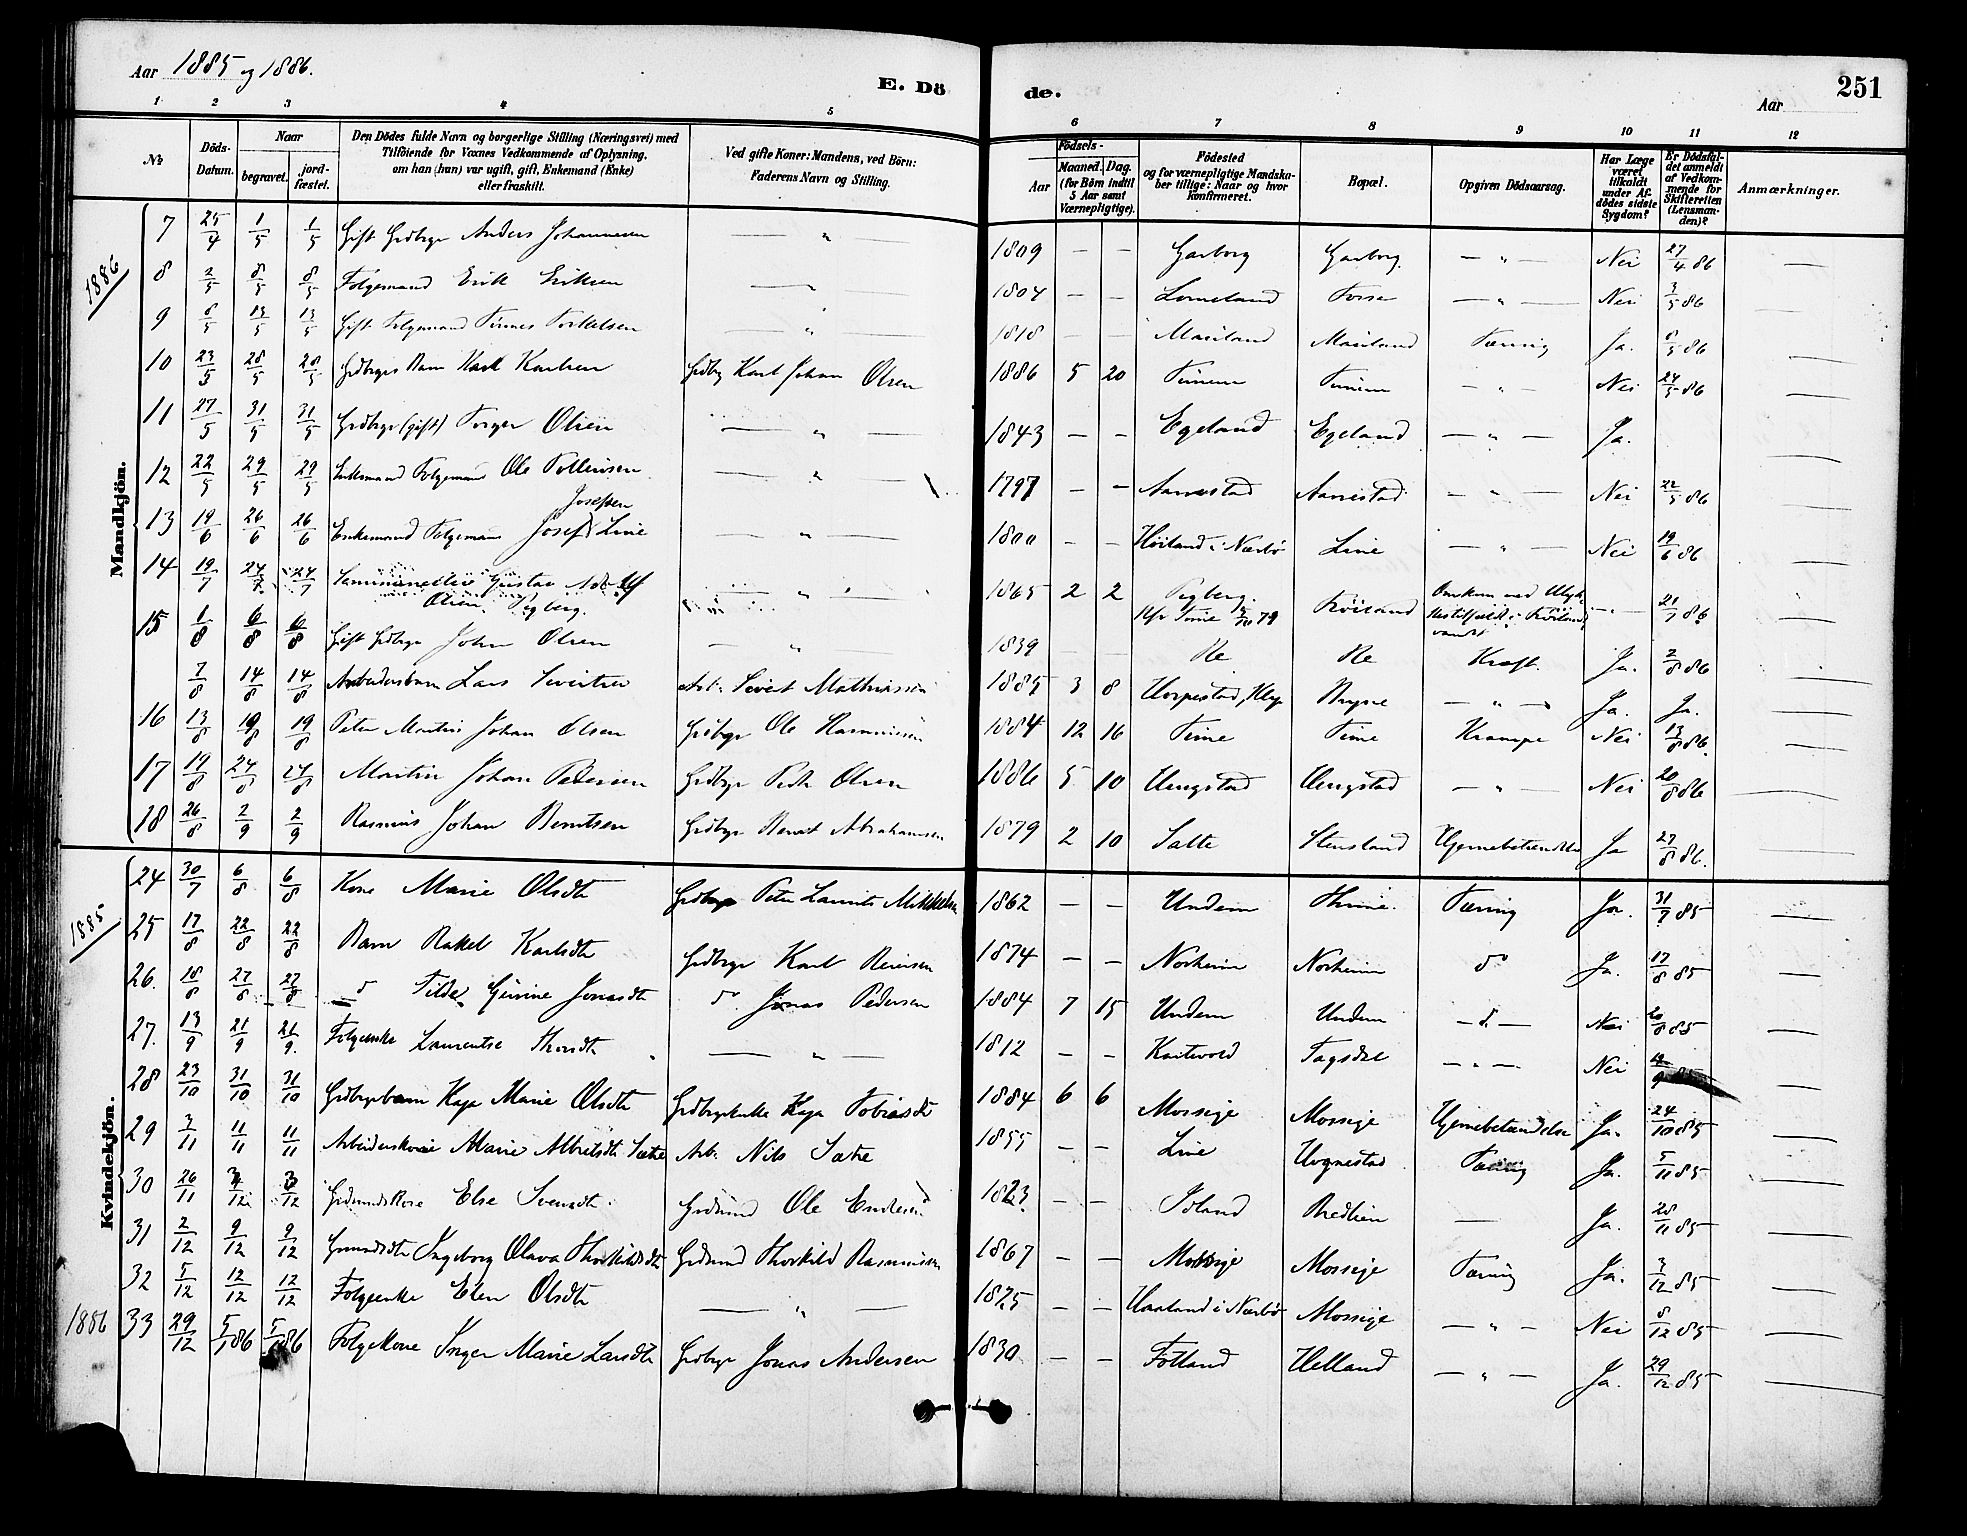 Aar 1885 og 1886.
E. Dö
de.
Aar
251
1 2 3 4 5 6 7 8 9 10 11 12
No
Döds-Datum.
Naar
begravet.
jord-fæstet.
Den Dödes fulde Navn og borgerlige Stilling (Næringsvei) med
Tilföiende for Voxnes Vedkommende af Oplysning,
om han (hun) var ugift, gift, Enkemand (Enke)
eller fraskilt.
Ved gifte Koner: Mandens, ved Börn:
Faderens Navn og Stilling.
Födsels-
Aar
Maaned. Dag.
(for Börn indtil
5 Aar samt
Værnepligtige).
Födested
og for værnepligtige Mandska-
ber tillige: Naar og hvor
konfirmeret.
Bopæl.
Opgiven Dödsaarsag.
Har Læge
været
tilkaldt
under Af-
dödes sidste
Sygdom?
Er Dödsfal-
det anmeldt
af Vedkom-
mende for
Skifteretten
(Lensman-
den)?
Anmærkninger.
Mandkjön.
1886
7 25/4 1/5 1/5 Gift Grdbrgr Anders Johannesen — " — 1809 — — Garborg Garborg — " — Nei 27/4 86 —
8 2/5 8/5 8/5 Folgemand Erik Eriksen — " — 1804 — — Fosse — " — Nei 3/5 86 —
9 8/5 13/5 13/5 Gift Folgemand Tönnes Torkelsen — " — 1818 — — Mauland Mauland Tæring Ja. 8/5 86 —
10 23/5 28/5 28/5 Grdbrgrs Barn Karl Karlsen Grdbrg Karl Johan Olsen 1886 5 20 — " — Nei 24/5 86 —
11 27/5 31/5 31/5 Grdbrgr (gift) Torger Olsen — " — 1843 — — Egeland Egeland — " — Ja. —
12 22/5 29/5 29/5 Enkemand Folgemand Ole Tollevsen — " — 1797 — — Aanestad Aanestad — " — Nei 22/5 86 —
13 19/6 26/6 26/6 Enkemand Folgemand Josef Josefsen Line — " — 1800 — — Höiland i Nærbö Line — " — Nei 19/6 86 —
14 19/7 24/7 24/7 Gustav Adolf
Olsen Tegberg. — " — 1865 2 2 Tegberg. Kfr Time 5/10 79 Fröiland Omkom ved Ulyk-
kestilfælde i Fröilands
vandet — " — 21/7 86 —
15 1/8 6/8 6/8 Gift Grdbrgr John Olsen — " — 1839 — — Re Re Kræft. Ja. 2/8 86 —
7/8 14/8 14/8 Arbeidersbarn Lars Sivertsen Arb. Sivert Mathiassen 1885 3 8 Horpestad, Klep Bryne — " — Ja. Ja. —
16 13/8 19/8 19/8 Peter Martin Johan Olsen Grdbrgr Ole Rasmussen 1884 12 16 Time Time Krampe Nei 13/8 86. —
17 19/8 24/8 24/8 Martin Johan Pedersen Grdbrgr Peder Olsen 1886 5 10 Hengstad Hengstad — " — Nei 20/8 86 —
18 26/8 2/9 2/9 Rasmus Johan Berntsen Grdbrgr Bernt Abrahamsen 1879 2 10 Salte Stensland Hjernebetændelse Ja 27/8 86. —
Kvindekjön.
1885
24 30/7 6/8 6/8 Kone Marie Olsdtr Grdbrgr Peter Laurits Mikkelsen 1862 — — Undem Thime. Tæring Ja. 31/7 85 —
25 17/8 22/8 22/8 Barn Rakel Karlsdtr Grdbrgr Karl Reinsen 1874 — — Norheim Norheim do Ja. 17/8 85 —
26. 18/8 27/8 27/8 do Tilde Gurine Jonasdtr do Jonas Pedersen 1884 7 15 Undem Undem — d. — Nei 20/8 85 —
27. 13/9 21/9 21/9. Folgeenke Laurentse Thordtr — " — 1812 — — Kartevold Tagsdal — " — Nei —
28 23/10 31/10 31/10 Grdbrgrbarn Kaja Marie Olsdtr Grdbrgrenke Kaja Tobiasdtr 1884 6 6 Mossige Mossige Hjernebetændelse Ja. 24/10 85 —
29 3/11 11/11 11/11 Arbeiderskone Marie Albretsdtr Sætre Arb. Nils Sætre 1855 — — Line Hognestad Tæring Ja. 5/11 85 —
30 26/11 3/12 3/12 Grdmandskone Else Svensdtr. Grdmnd Ole Endresen 1823. — — Idland Bredlien — Ja. 28/11 85 —
31 2/12 9/12 9/12 Grmandsdtr Ingeborg Olava Thorkildsdtr Grdmnd Thorkild Rasmussen 1867 — — Mossige Mossige Tæring Ja. 3/12 85 —
32 5/12 12/12 12/12 Folgeenke Elen Olsdtr — " — 1825 — — Haaland i Nærbö Mossige — " — Nei 8/12 85 —
1886 33 29/12 5/1 86 5/1 86 Folgekone Inger Marie Larsdtr Grdbrgr Jonas Andersen 1830 — — Fotland Helland — " — Ja. 29/12 85 —